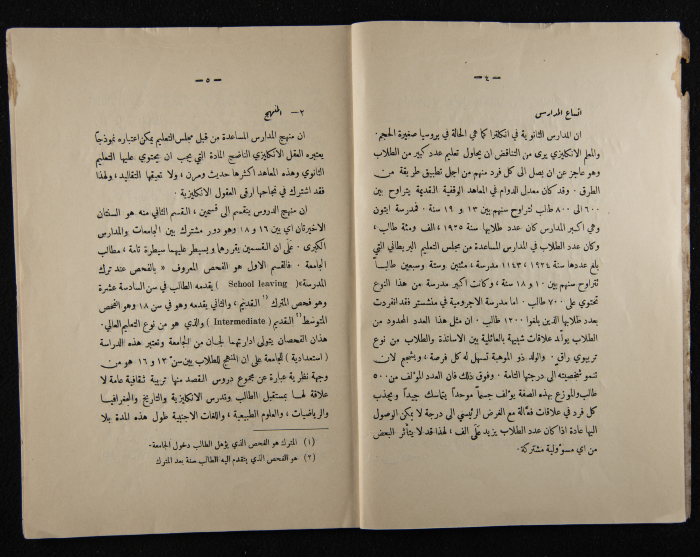 — ٤ —
اتساع المدارس
ان المدارس الثانوية في انكلترا كما هي الحالة في بروسيا صغيرة الحجم.
والمعلم الانكليزي يرى من التناقض ان يحاول تعليم عدد كبير من الطلاب
وهو عاجز عن ان يصل الى كل فرد منهم من اجل تطبيق طريقة من
الطرق. وقد كان معدل الدوام في المعاهد الوقفية القديمة يتراوح بين
٦٠٠ الى ٨٠٠ طالب تتراوح سنهم بين ١٣ و ١٩ سنة. فمدرسة ايتون
وهي اكبر المدارس كان عدد طلابها سنة ١٩٣٥، الف ومئة طالب،
وكان عدد الطلاب في المدارس المساعدة من مجلس التعليم البريطاني التي
بلغ عددها سنة ١٩٢٤، ١١٤٣ مدرسة، مئتين وستة وسبعين طالباً
تتراوح سنهم بين ١٠ و ١٨ سنة، وكانت اكبر مدرسة من هذا النوع
تحتوي على ٧٠٠ طالب. اما مدرسة الاجرومية في منشستر فقد انفردت
بعدد طلابها الذين بلغوا ١٢٠٠ طالب. ان مثل هذا العدد المحدود من
الطلاب يولد علاقات شبيهة بالعائلية بين الاساتذة والطلاب من نوع
تربيوي راق. والولد ذو الموهبة تسهل له كل فرصة، ويشجع لان
تنمو شخصيته الى درجتها التامة. وفوق ذلك فان العدد المؤلف من ٥٠٠
طالب والموزع بهذه الصفة يؤلف جسماً موحداً يتماسك جيداً ويجذب
كل فرد في علاقات فعالة مع الغرض الرئيسي الى درجة لا يمكن الوصول
اليها عادة اذا كان عدد الطلاب يزيد على الف، لهذا قد لا يتأثر البعض
من اي مسؤولية مشتركة.
— ٥ —
٢ – المنهج
ان منهج المدارس المساعدة من قبل مجلس التعليم يمكن اعتباره نموذجاً
يعتبره العقل الانكليزي الناضج المادة التي يجب ان يحتوي عليها التعليم
الثانوي وهذه المعاهد اكثرها حديث ومرن، ولا تعيقها التقاليد، ولهذا
فقد اشترك في نجاحها ارقى العقول الانكليزية.
ان منهج الدروس ينقسم الى قسمين، القسم الثاني منه هو السنتان
الاخيرتان اي بين ١٦ و ١٨ وهو دور مشترك بين الجامعات والمدارس
الكبرى. على ان القسمين يقررها ويسيطر عليهما سيطرة تامة، مطالب
الجامعة. فالقسم الاول هو الفحص المعروف « بالفحص عند ترك
المدرسة» ( School leaving ) يقدمه الطالب في سن السادسة عشرة
وهو فحص المترك (١) القديم، والثاني يقدمه وهو في سن ١٨ وهو الفحص
المتوسط (٢) القديم ( Intermediate ) والذي هو من نوع التعليم العالي.
هذان الفحصان يتولى ادارتهما لجان من الجامعة وتعتبر هذه الدراسة
( استعدادية ) للجامعة على ان المنهج للطلاب بين سن ١٣ و ١٦ هو من
وجهة نظرية عبارة عن مجموع دروس القصد منها تربية ثقافية عامة لا
علاقة لها بمستقبل الطالب وتدرس الانكليزية والتاريخ والجغرافيا
والرياضيات، والعلوم الطبيعية، واللغات الاجنبية طول هذه المدة بلا
(١) المترك هو الفحص الذي يؤهل الطالب دخول الجامعة.
(٢) هو الفحص الذي يتقدم اليه الطالب سنة بعد المترك